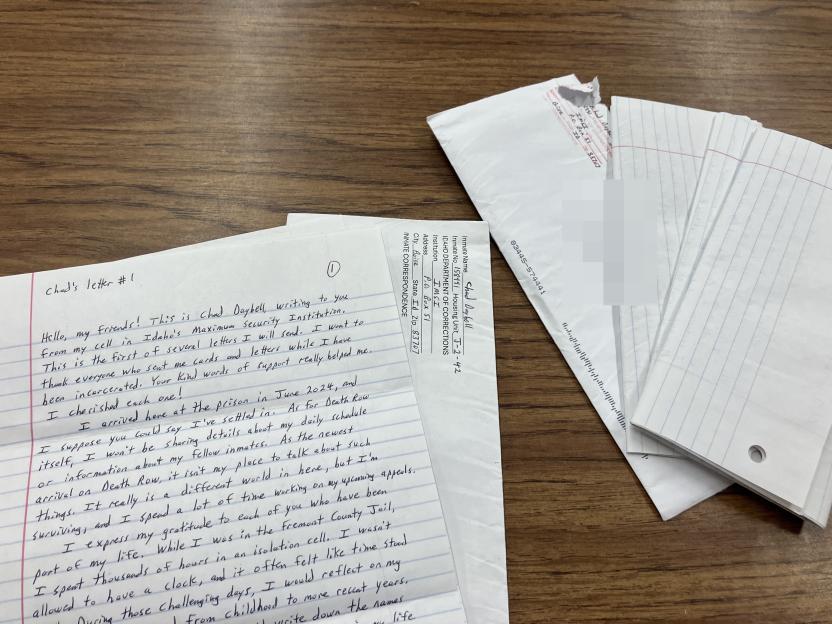 Chad's letter #1
1
Hello, my friends! This is Chad Daybell writing to you
from my cell in Idaho's Maximum Security Institution.
This is the first of several letters I will send. I want to
thank everyone who sent me cards and letters while I have
been incarcerated. Your kind words of support really helped me.
I cherished each one!
I arrived here at the prison in June 2024, and
I suppose you could say I've settled in. As for Death Row
itself, I won't be sharing details about my daily schedule
or information about my fellow inmates. As the newest
arrival on Death Row, it isn't my place to talk about such
things. It really is a different world in here, but I'm
surviving, and I spend a lot of time working on my upcoming appeals.
I express my gratitude to each of you who have been
part of my life. While I was in the Fremont County Jail,
I spent thousands of hours in an isolation cell. I wasn't
allowed to have a clock, and it often felt like time stood
During those challenging days, I would reflect on my
from childhood to more recent years.
write down the names
my life
Inmate Name Chad Daybell
Inmate No. 158991 Housing Unit J-2-42
IDAHO DEPARTMENT OF CORRECTIONS
Institution IMSI
Address P.O. Box 51
City Boise State Id Zip 83707
INMATE CORRESPONDENCE
Chad Dayb
IMSI
PO Box 51
83707
83445-574441